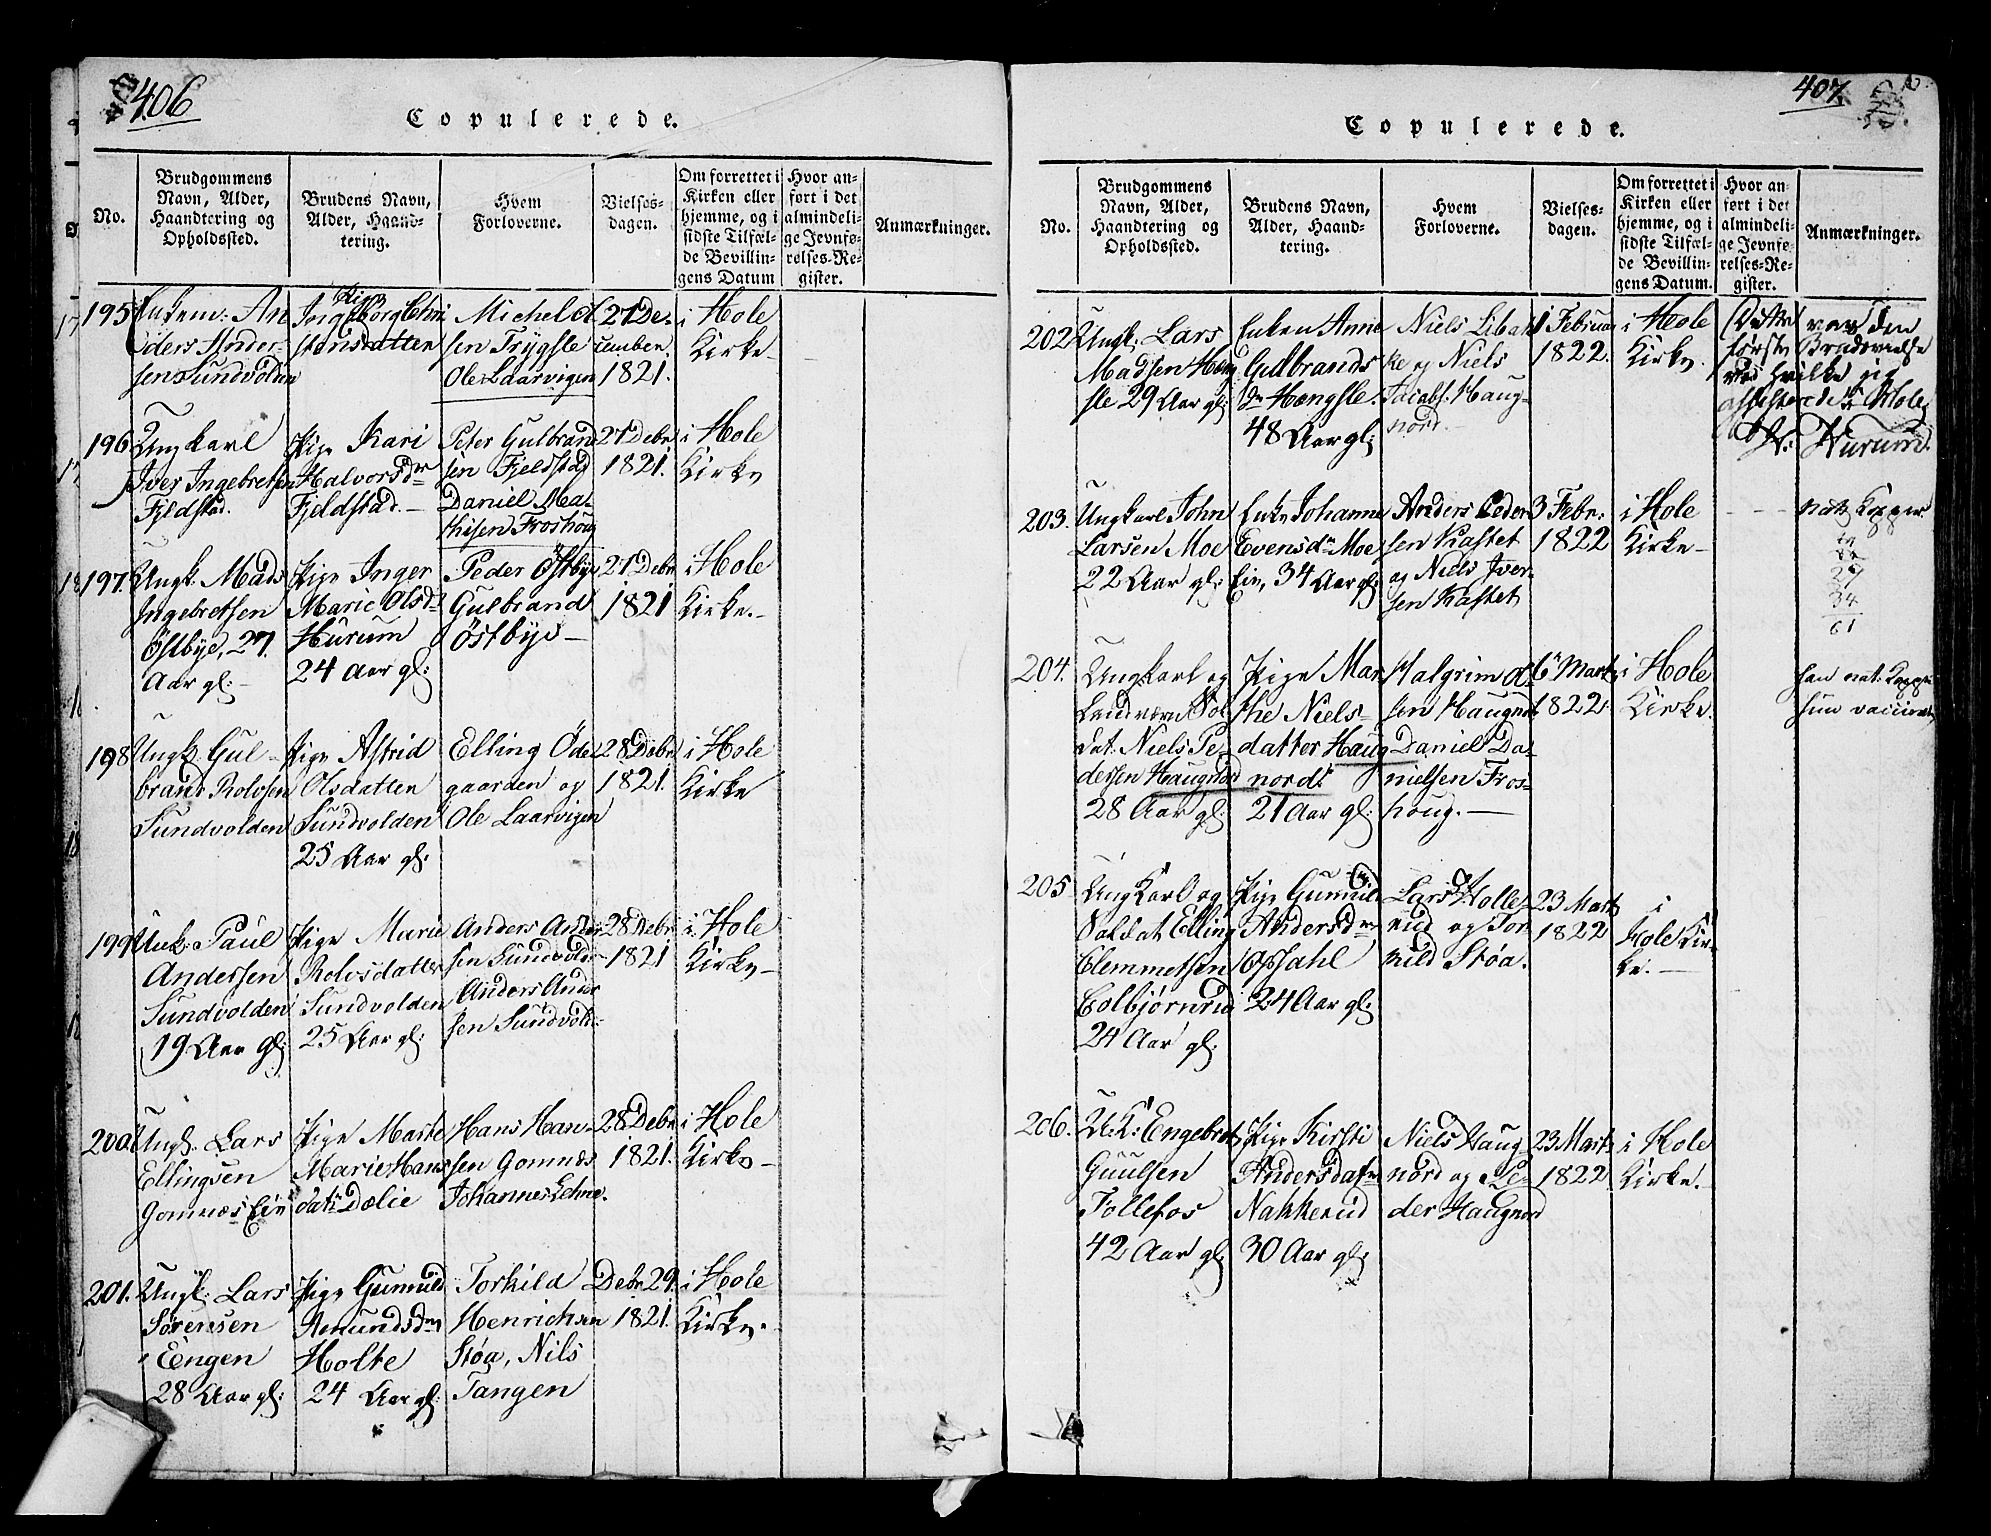 406
Copulerede.
No.
Brudgommens
Navn, Alder,
Haandtering og
Opholdssted.
Brudens Navn,
Alder, Haand-
tering.
Hvem
Forloverne.
Vielses-
dagen.
Om forrettet i
Kirken eller
hjemme, og i
sidste Tilfæl-
de Bevillin-
gens Datum
Hvor an-
ført i det
almindeli-
ge Jevnfø-
relses-Re-
gister.
Anmærkninger.
195
An
ders Ander-
sen Sundvolden
Ingeborg Chri
stensdatter
Michel Ol
sen Frygsle
Ole Laarvigen
27 De-
cember
1821.
i Hole
Kirke
196
Ungkarl
Iver Ingebretsen
Fjeldstad.
Pige Kari
Halvorsdr
Fjeldstad.
Peter Gulbrand
sen Fjeldstad
Daniel Mat
hisen Froshoug
27 Debr
1821.
i Hole
Kirke
197.
Ungk. Mads
Ingebretsen
Østbye, 27.
Aar gl.
Pige Inger
Marie Olsdr
Hurum
24 Aar gl:
Peder Østbye
Gulbrand
Østbye
27 Debr
1821
i Hole
Kirke.
198
Ungk. Gul
brand Rolvsen
Sundvolden
Pige Astrid
Olsdatter
Sundvolden
25 Aar gl.
Elling Øde
gaarden og
Ole Laarvigen
28 Debr
1821.
i Hole
Kirke
199
Unk. Paul
Andersen
Sundvolden
19 Aar gl:
Pige Marie
Rolvsdatter
Sundvolden
25 Aar gl:
Anders Ander
sen Sundvold
Anders Ander
sen Sundvold
28 Debr
1821
i Hole
Kirke
200.
Ungk. Lars
Ellingsen
Gomnæs Eie
Pige Marte
Marie Hans
datr Dælie
Hans Han-
sen Gomnæs
Johannes Lehne.
28 Debr
1821.
i Hole
Kirke
201.
Ungk. Lars
Sørensen
Engen
28 Aar gl:
Pige Gunnild
Amundsdr
Holte
24 Aar gl:
Torkild
Henrichsen
Støa, Nils
Tangen
Debr 29.
1821.
i Hole
Kirke.
407
Copulerede.
No.
Brudgommens
Navn, Alder,
Haandtering og
Opholdssted.
Brudens Navn,
Alder, Haand-
tering.
Hvem
Forloverne.
Vielses-
dagen.
Om forrettet i
Kirken eller
hjemme, og i
sidste Tilfæl-
de Bevillin-
gens Datum.
Hvor an-
ført i det
almindeli-
ge Jevnfø-
relses-Re-
gister.
Anmærkninger.
202
Ungk. Lars
Madsen Hæng
sle 29 Aar gl:
Enken Anne
Gulbrands
dr Hængsle.
48 Aar gl:
Niels Libak
ke og Niels
Jacobs. Haug-
nord.
1 Februar
1822.
i Hole
Kirke
Dette var den
første Brudevielse
ved hvilke jeg
assisterede i Hole
Hurum
203.
Ungkarl John
Larsen Moe
22 Aar gl:
Enke Johanne
Evensdr Moe
Eie, 34 Aar gl:
Anders Peder
sen Rastet
og Niels Iver-
sen Rastet
3 Febr:
1822
i Hole
Kirke
natt. Kopper.
27
34
61
204.
Ungkarl og
Landværn Sol
dat. Niels Pe-
dersen Haugnord
28 Aar gl:
Pige Mar
the Niels-
datter Haug
nord.
21 Aar gl:
Halgrim Ol
sen Haugnord
Daniel Da-
nielsen Fros-
houg.
6 Marts
1822.
i Hole
Kirke.
han nat. Kopper
hun vaccineret
205
Ungkarl og
Soldat Elling
Clemmetsen
Colbjørnrud
24 Aar gl.
Pige Gunnild
Andersdr
Opsahl
24 Aar gl:
Lars Holle-
rud og Tor
kild Støa.
23 Marts
1822
i
Hole Kir-
ke.
206.
U.K: Engebret
Guulsen
Follefos
42 Aar gl:
Pige Kirsti
Andersdatr
Nakkerud
30 Aar gl:
Niels Haug-
nord og Pe-
der Haugnord
23 Marts
1822
i Hole
Kirke.